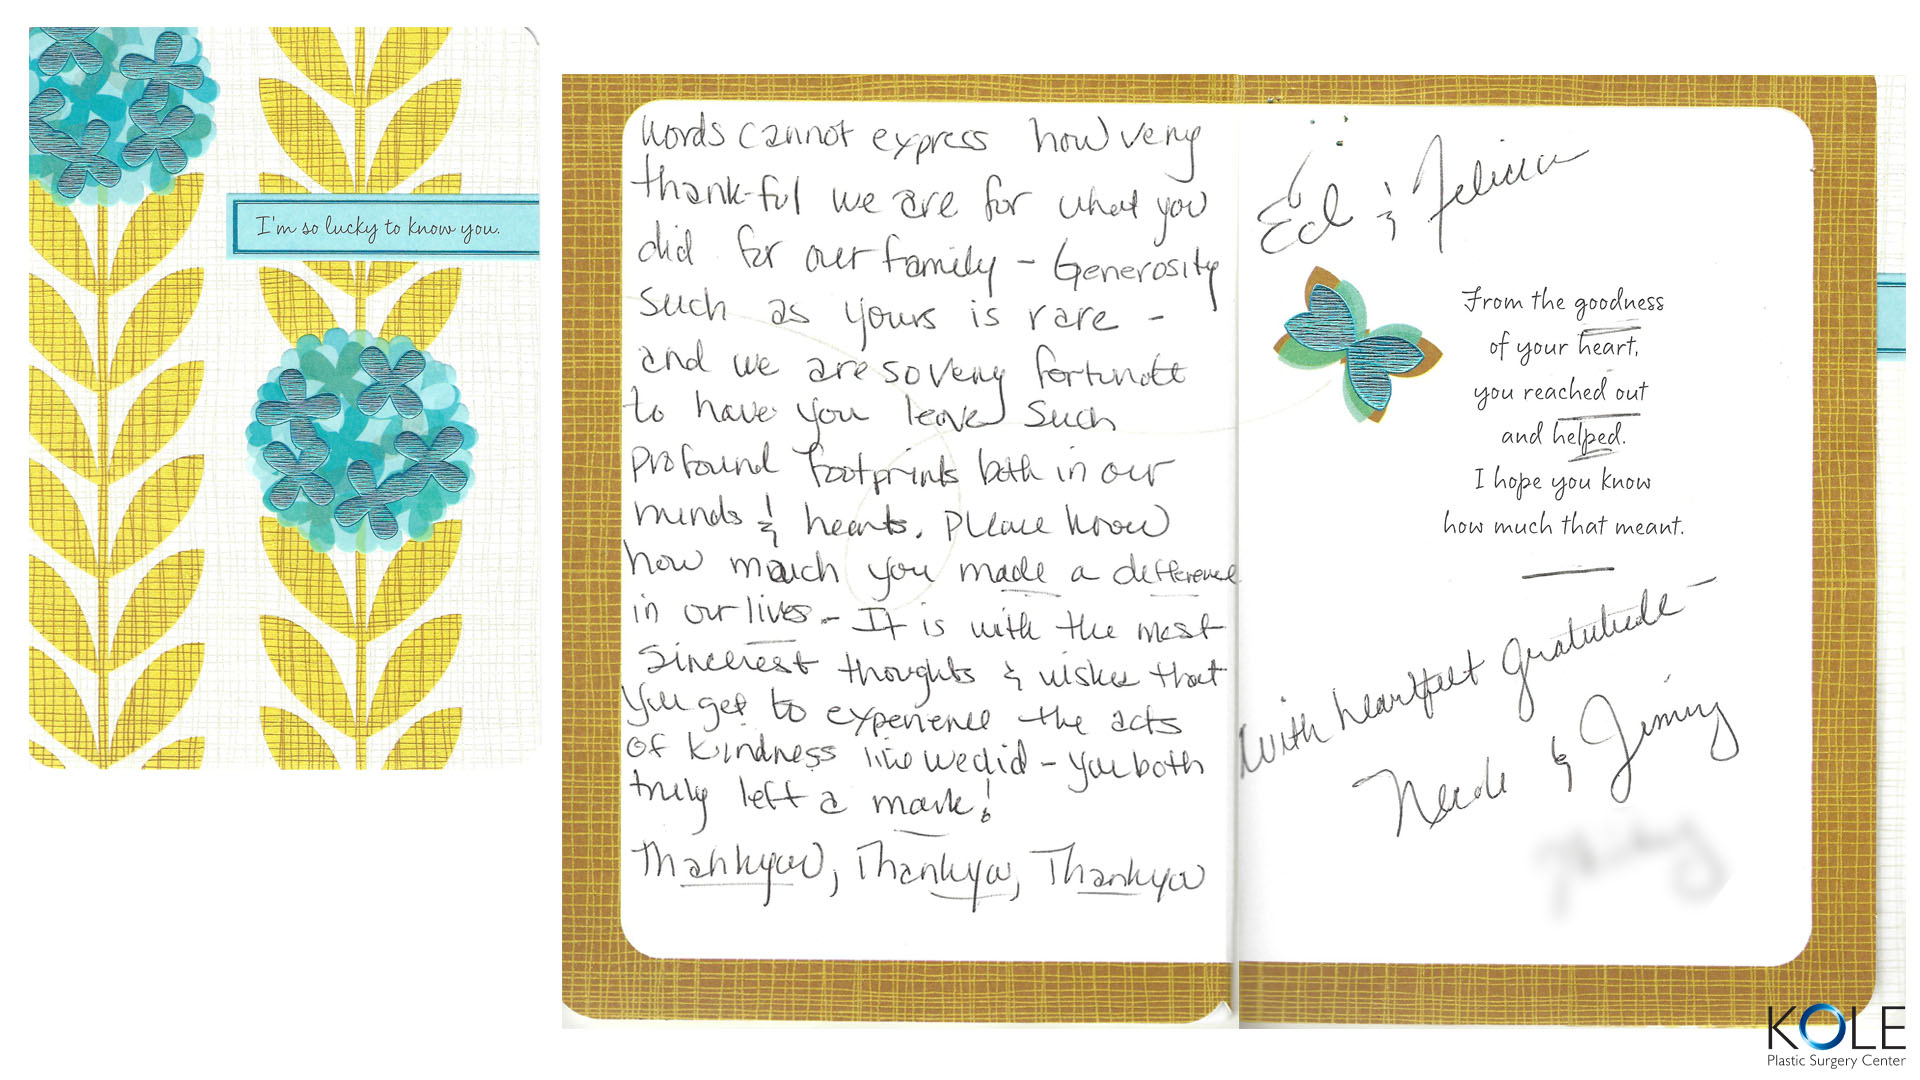 I'm so lucky to know you.
Words cannot express how very
thankful we are for what you
did for our family - Generosity
such as yours is rare -
and we are so very fortunate
to have you leave such
profound footprints both in our
minds & hearts. Please know
how much you made a difference
in our lives - It is with the most
sincerest thoughts & wishes that
you get to experience the acts
of kindness like we did - you both
truly left a mark!
Thankyou, Thankyou, Thankyou
Ed & Felicia
From the goodness
of your heart,
you reached out
and helped.
I hope you know
how much that meant.
With heartfelt gratitude -
& Jimmy
KOLE
Plastic Surgery Center